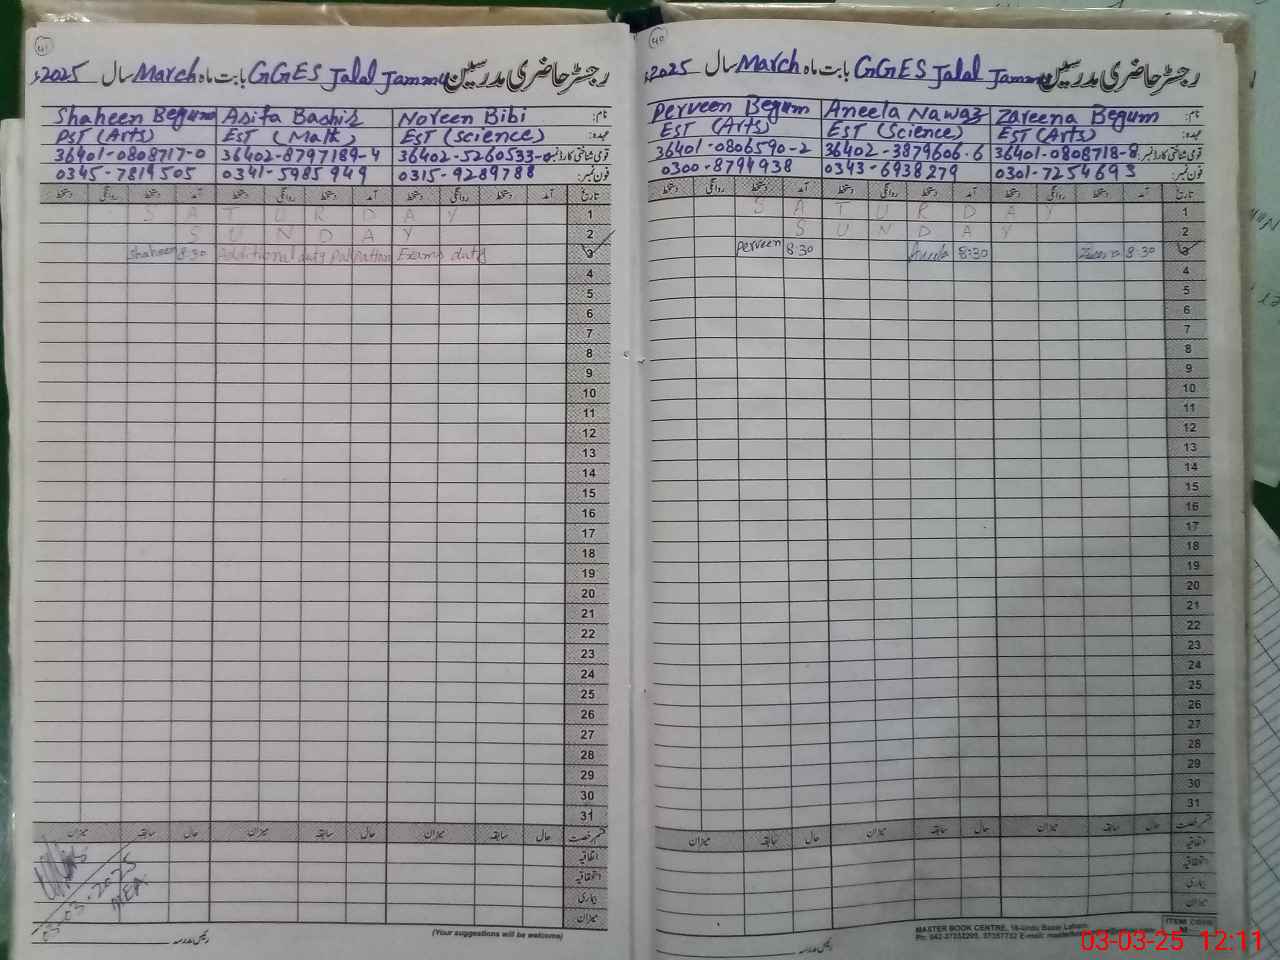 41
رجسٹر حاضری مدرسین GGES Jalal Jammu بابت ماہ March سال 2025ء
Shaheen Begum Asifa Bashir Noreen Bibi نام:
PST (Arts) EST (Math) EST (Science) عہدہ:
36401-0808717-0 36402-8797189-4 36402-5260533-0 قومی شناختی کارڈ نمبر:
0345-7819505 0341-5985949 0315-9289788 فون نمبر:
تاریخ آمد دستخط روانگی دستخط آمد دستخط روانگی دستخط آمد دستخط روانگی دستخط
S A T U R D A Y 1
S U N D A Y 2
Shaheen 8:30 Additional duty Pakpattan Exam duty 3
4
5
6
7
8
9
10
11
12
13
14
15
16
17
18
19
20
21
22
23
24
25
26
27
28
29
30
31
قسم رخصت حال سابقہ میزان حال سابقہ میزان حال سابقہ میزان
اتفاقیہ
استحقاقیہ
بیماری
میزان
03-2025
MEA
(Your suggestions will be welcome)
رئیس مدرسہ
40
رجسٹر حاضری مدرسین GGES Jalal Jammu بابت ماہ March سال 2025ء
Perveen Begum Aneela Nawaz Zareena Begum نام:
EST (Arts) EST (Science) EST (Arts) عہدہ:
36401-0806590-2 36402-3879606-6 36401-0808718-8 قومی شناختی کارڈ نمبر:
0300-8794938 0343-6938279 0301-7254693 فون نمبر:
تاریخ آمد دستخط روانگی دستخط آمد دستخط روانگی دستخط آمد دستخط روانگی دستخط
S A T U R D A Y 1
S U N D A Y 2
Perveen 8:30 Aneela 8:30 8:30 3
4
5
6
7
8
9
10
11
12
13
14
15
16
17
18
19
20
21
22
23
24
25
26
27
28
29
30
31
قسم رخصت حال سابقہ میزان حال سابقہ میزان حال سابقہ میزان
اتفاقیہ
استحقاقیہ
بیماری
میزان
رئیس مدرسہ
MASTER BOOK CENTRE, 16-Urdu Bazar Lahore
ITEM CODE
03-03-25 12:11